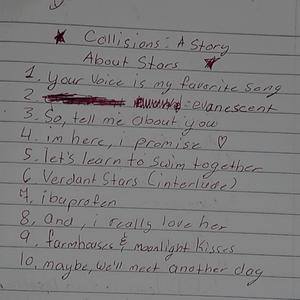 Collisions: A Story
About Stars
1. your voice is my favorite song
2. : evanescent
3. So, tell me about you
4. im here, i promise ♡
5. let's learn to swim together
6 Verdant Stars (interlude)
7. ibuprofen
8. and, i really love her
9. farmhouses & moonlight kisses
10. maybe, we'll meet another day